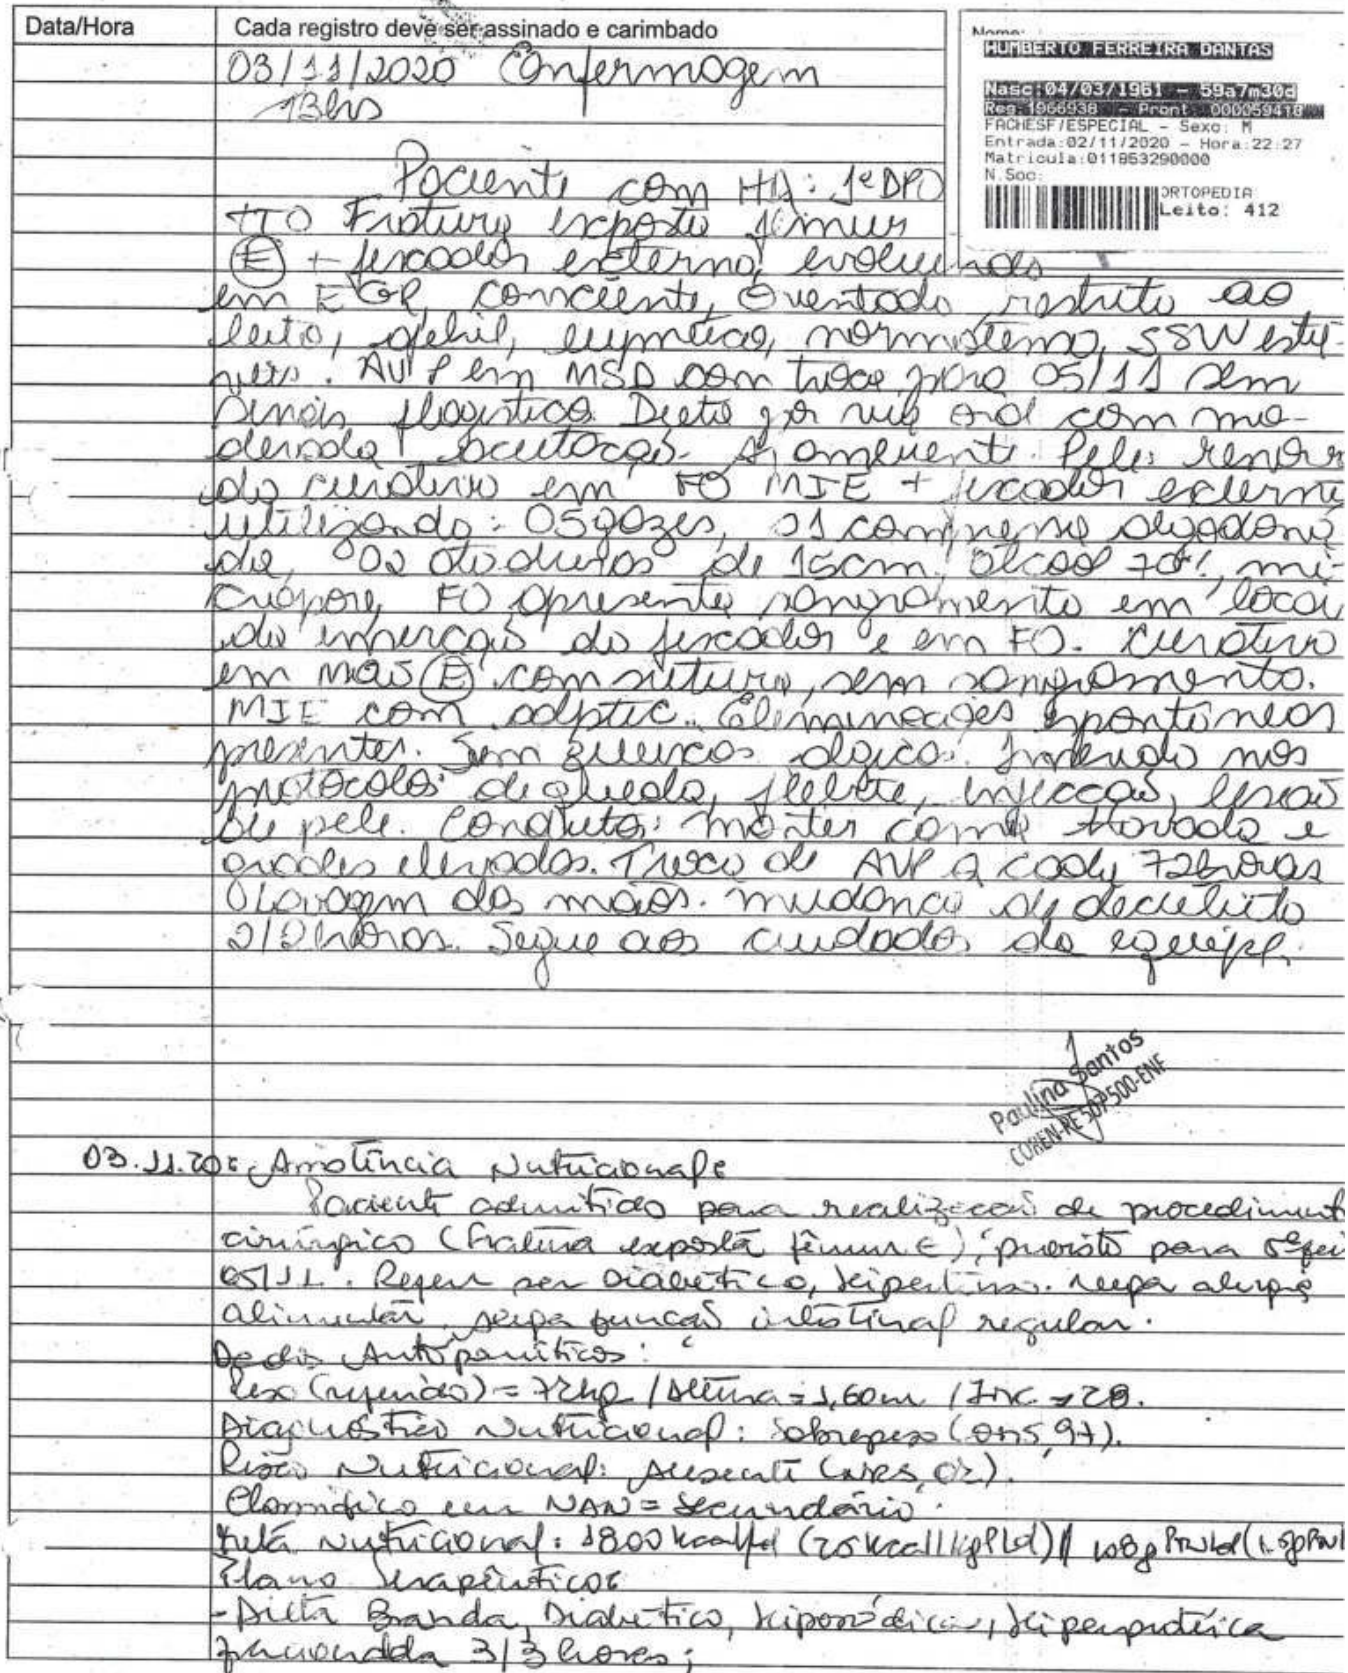 Data/Hora
Cada registro deve ser assinado e carimbado
Nome:
HUMBERTO FERREIRA DANTAS
Nasc:04/03/1961 - 59a7m30d
Reg:1966938 - Pront: 000059418
FACHESF/ESPECIAL - Sexo: M
Entrada:02/11/2020 - Hora:22:27
Matricula:011853290000
N.Soc:
ORTOPEDIA
Leito: 412
03/11/2020 Enfermagem
13hrs
Paciente com HD: 1º DPO
TTO Fratura exposta fêmur
(E) + fixador externo, evoluindo
em EGR, consciente, orientado, restrito ao
leito, afebril, eupneico, normotenso, SSVV está-
veis. AVP em MSD com troca para 05/11 sem
sinais flogisticos. Dieta por via oral com mo-
derada aceitação. Ar ambiente. Pele:
do curativo em FO MIE + fixador externo
utilizando: 05 gazes, 01 compressa algodona
da, 02 ataduras de 15cm, álcool 70%, mi-
cropore, FO apresenta sangramento em local
de inserção do fixador e em FO. Curativo
em mão (E) com sutura, sem sangramento.
MIE com adaptic. Eliminações espontâneas
presentes. Sem queixas algicas. Inserido nos
protocolos de queda, flebite, infecção, lesão
de pele. Conduta: manter cama travada e
grades elevadas. Troca de AVP a cada 72horas
lavagem das mãos. mudança de decubito
2/2 horas. Segue aos cuidados da equipe.
Paulina Santos
COREN-PE 507500-ENF
03.11.20: Assistência Nutricional:
Paciente admitido para realização de procediment
cirúrgico (fratura exposta fêmur E), previsto para 5ª fei
05/11. Refere ser diabético, hipertenso. nega alergia
alimentar, função intestinal regular.
Dados Antropométricos:
Peso (referido) = 72kg / Altura = 1,60m / IMC → 28.
Diagnóstico Nutricional: Sobrepeso (OMS, 97).
Risco Nutricional: Ausente (NRS, 02).
Classifico em NAN = Secundário.
Meta Nutricional: 1800 kcal/d (25 kcal/kgP/d) // 108g
Plano Terapêutico:
- Dieta Branda, Diabético, hipossódica, hiperproteica
fracionada 3/3 horas;